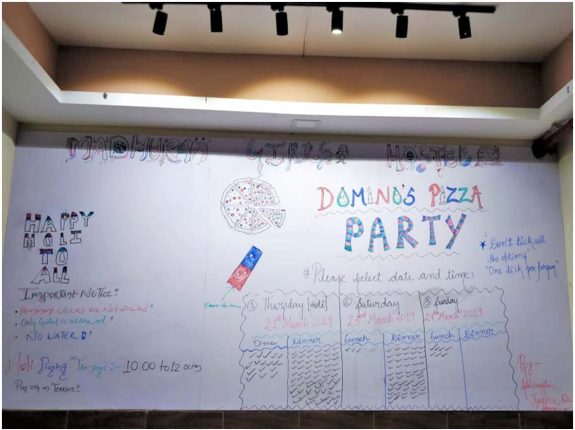 MADHURAM GIRLS HOSTEL
DOMINO'S PIZZA
PARTY
HAPPY
HOLI
TO
ALL
Important Notice:
Permanent colours are not allowed
Only Gulal is allowed
NO WATER
Holi Playing Timings:- 10:00 to 12:00
Play only on Terrace!
# Please select date and time:
★ "Don't tick all
the options"
"One tick per person"
① Thursday [Holi]
21st March 2019
② Saturday
23rd March 2019
③ Sunday
24th March 2019
Dinner Lunch Dinner Lunch Dinner
By-